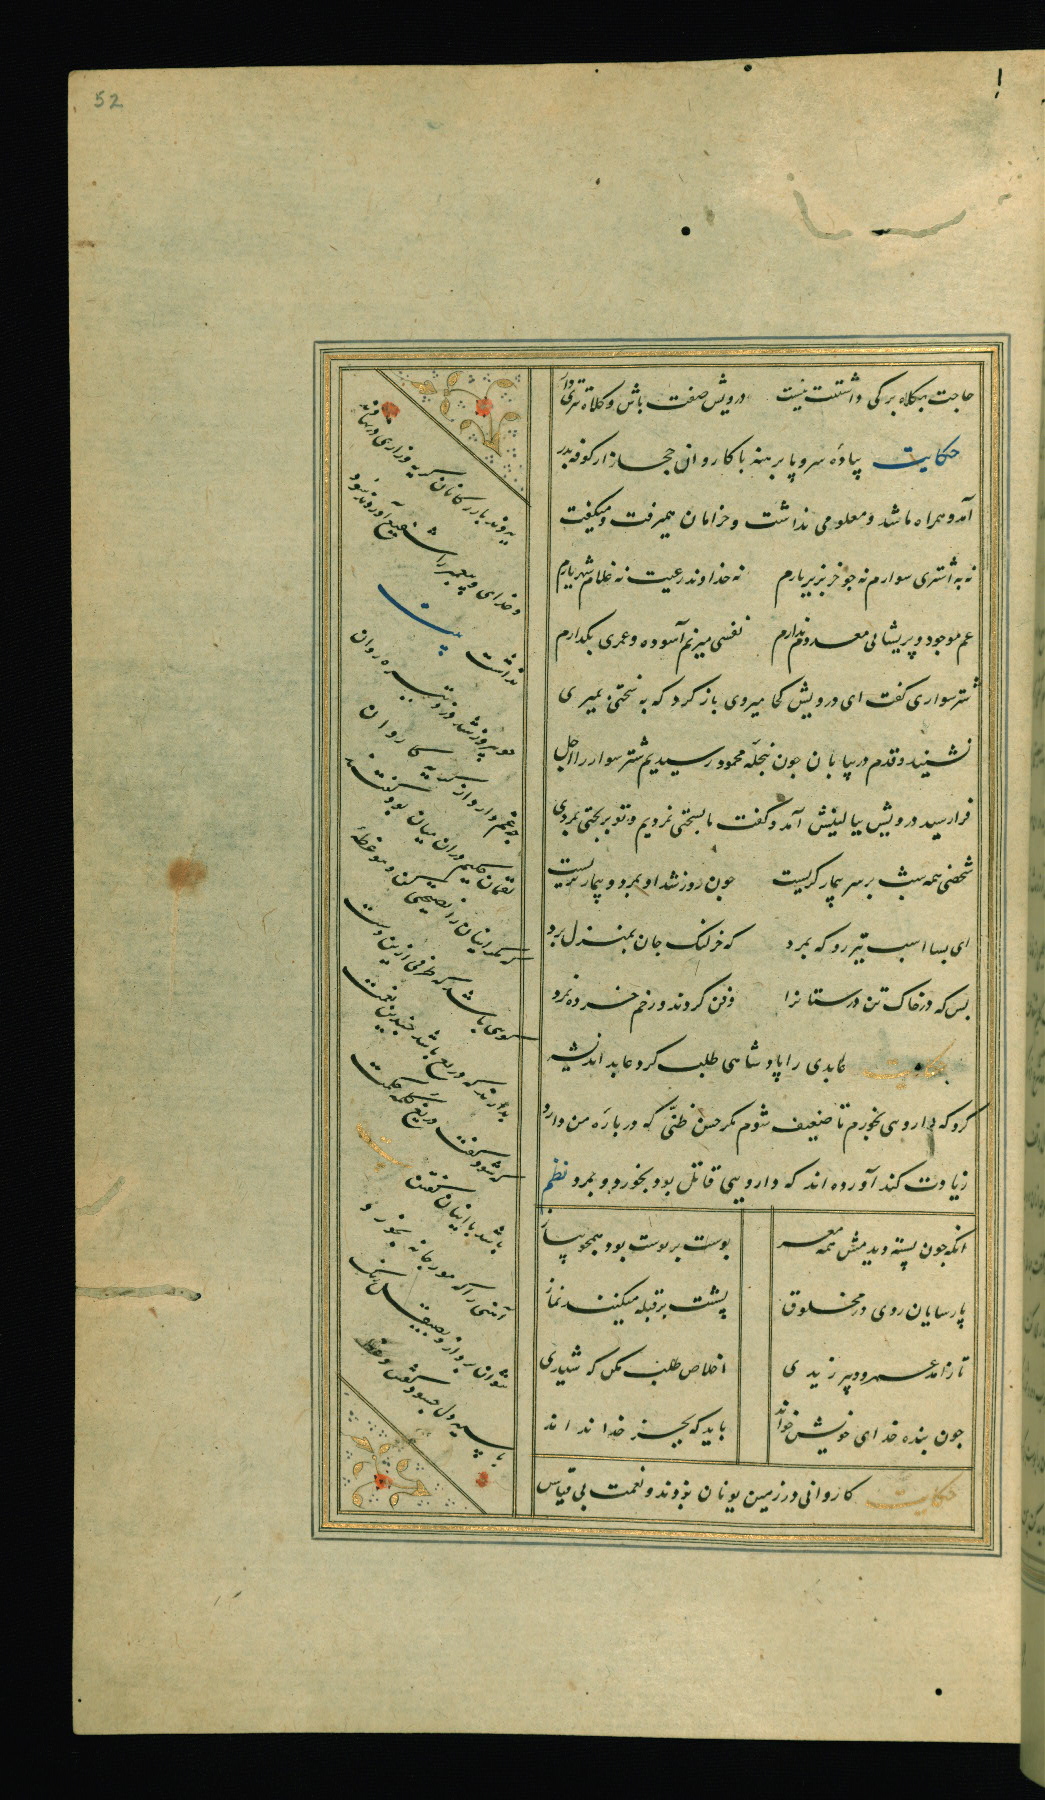 52
حاجت بکلاه برکی داشتنت نیست درویش صفت باش و کلاه تتری دار
حکایت پیادهٔ سر و پا برهنه با کاروان حجاز از کوفه بدر
آمد و همراه ما شد و معلومی نداشت و خرامان همیرفت و میکفت
نه به اشتری سوارم نه چو خر بزیر بارم نه خداوند رعیت نه غلام شهریارم
غم موجود و پریشانی معدوم ندارم نفسی میزنم آسوده و عمری بکذارم
شتر سواری کفت ای درویش کجا میروی باز کرد که به سختی بمیری
نشنید و قدم در بیابان چون بنخلهٔ محمود رسیدیم شتر سوار را اجل
فرا رسید درویش ببالینش آمد و کفت ما بسختی نمردیم و تو بر بختی بمردی
شخصی همه شب بر سر بیمار کریست چون روز شد او بمرد و بیمار بزیست
ای بسا اسب تیز رو که بمرد که خر لنک جان بمنزل برد
بس که در خاک تن درستانرا دفن کردند و زخم خورده نمرد
حکایت عابدی را پادشاهی طلب کرد عابد اندیشه
کرد که داروی بخورم تا ضعیف شوم مکر حسن ظنی که در بارهٔ من دارد
زیادت کند آورده اند که داروی قاتل بود بخورد و بمرد نظم
انکه چون پسته دیدمش همه مغز پوست بر پوست بود همچو پیاز
پارسایان روی در مخلوق پشت بر قبله میکنند نماز
تا زاهد عمرو و زیدی اخلاص طلب مکن که شیدی
چون بنده خدای خویش خواند باید که بجز خدا نداند
حکایت کاروانی در زمین یونان بزدند و نعمت بی قیاس
ببردند بازرکانان کریه و زاری کردند
و خدای و پیمبر را شفیع آوردند سود
نداشت بیت
چو پیروز شد دزد تیره روان
چه غم دارد از کریهٔ کاروان
لقمان حکیم در ان میان بود کفتند
مکر اینان را نصیحتی کنی و موعظهٔ
باشد که طرفی ازین دست
بدارند که دریغ باشد چندین نعمت
کفت دریغ کلمهٔ حکمت
باشد با اینان کفتن بیت
آهنی را که مورچانه بخورد
نتوان برد ازو بصیقل زنک
با سیه دل چه سود کفتن وعظ